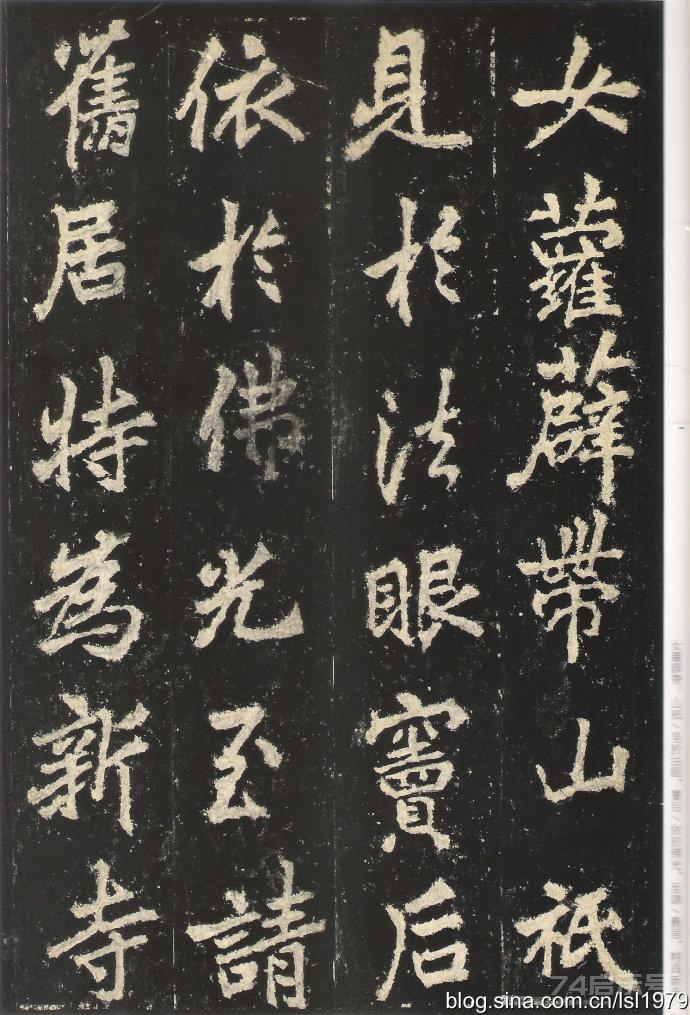 女蘿薜帶山祇
見於法眼竇后
依於佛光至請
舊居特為新寺
74启示号
blog.sina.com.cn/lsl1979